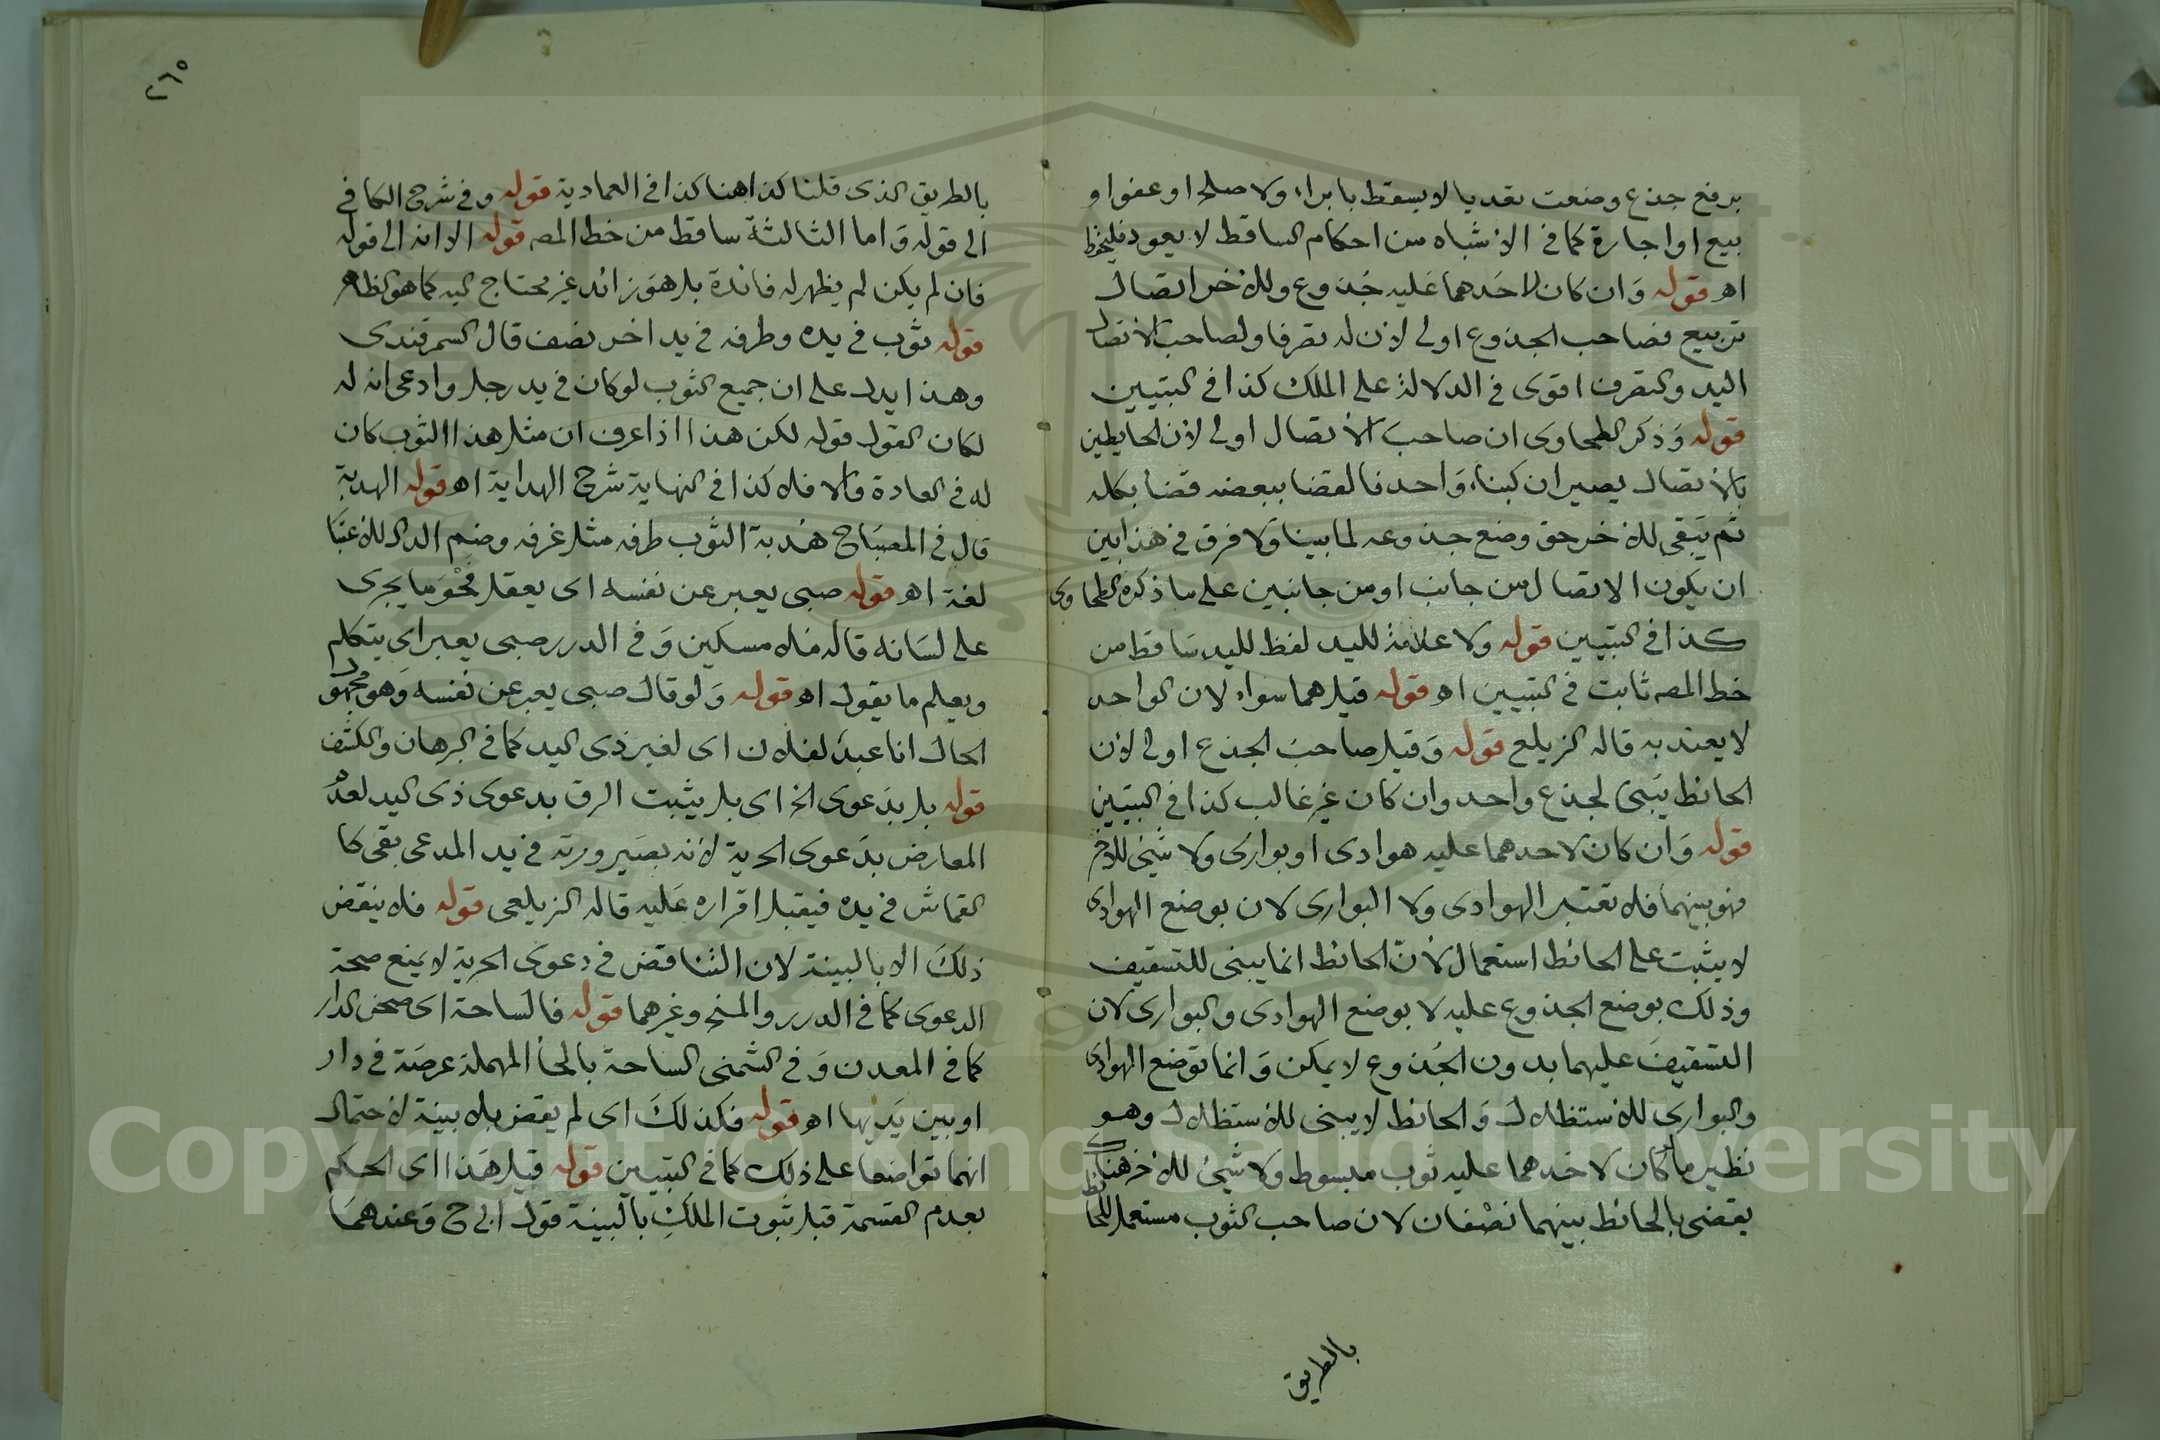 برفع جذع وضعت تعديا لا يسقط بابراء ولا صلح او عفو او
بيع او اجارة كما فى الاشباه من احكام الساقط لا يعود فليحفظ
اه قوله وان كان لاحدهما عليه جذوع وللاخر اتصال
تربيع فصاحب الجذوع اولى لان له تصرفا ولصاحب الاتصال
اليد والتصرف اقوى فى الدلالة على الملك كذا فى التبيين
قوله وذكر الطحاوى ان صاحب الاتصال اولى لان الحايطين
بالاتصال يصيران كبناء واحد فالقضا ببعضه قضا بكله
ثم يبقى للاخر حق وضع جذوعه لما بينا ولا فرق فى هذا بين
ان يكون الاتصال من جانب او من جانبين على ما ذكره الطحاوى
كذا فى التبيين قوله ولا علامة لليد لفظ لليد ساقط من
خط المصـ ثابت فى التبيين اه قوله قيل هما سواء لان الواحد
لا يعتد به قاله الزيلع قوله وقيل صاحب الجذع اولى لان
الحائط يبنى لجذع واحد وان كان غير غالب كذا فى التبيين
قوله وان كان لاحدهما عليه هوادى او بوارى ولا شئ للاخر
فهو بينهما فلا تعتبر الهوادى ولا البوارى لان بوضع الهوادى
لا يثبت على الحائط استعمال لان الحائط انما يبنى للتسقيف
وذلك بوضع الجذوع عليه لا بوضع الهوادى والبوارى لان
التسقيف عليهما بدون الجذوع لا يمكن وانما توضع الهوادى
والبوارى للاستظلال والحائط لا يبنى للاستظلال وهو
نظير ما لو كان لاحدهما عليه ثوب مبسوط ولا شئ للاخر هناك
يقضى بالحائط بينهما نصفان لان صاحب الثوب مستعمل للحائط
بالطريق
٢٦٥
بالطريق الذى قلنا كذا هنا كذا فى العمادية قوله وفى شرح الكافى
الى قوله واما الثالثة ساقط من خط المصـ قوله الا انه الى قوله
فان لم يكن لم يظهر له فائدة بل هو زائد غير محتاج اليه كما هو الظاهر
قوله ثوب فى يده وطرفه فى يد اخر نصف قال السمرقندى
وهذا يدل على ان جميع الثوب لو كان فى يد رجل وادعى انه له
لكان القول قوله لكن هذا اذا عرف ان مثل هذا الثوب كان
له فى العادة والا فلا كذا فى النهاية شرح الهداية اه قوله الهدبة
قال فى المصباح هدبة الثوب طرفه مثل غرفه وضم الدال للاتباع
لغة اه قوله صبى يعبر عن نفسه اى يعقل فحو ما يجرى
على لسانه قاله منلا مسكين وفى الدرر صبى يعبر اى يتكلم
ويعلم ما يقول اه قوله ولو قال صبى يعبر عن نفسه وهو مجهول
الحال انا عبد لفلان اى لغير ذى اليد كما فى البرهان والكشف
قوله بل بدعوى الخ اى بل يثبت الرق بدعوى ذى اليد لعدم
المعارض بدعوى الحرية لانه بصيرورته فى يد المدعى بقى كا
القماش فى يده فيقبل اقراره عليه قاله الزيلعى قوله فلا ينقض
ذلك الا بالبينة لان التناقض فى دعوى الحرية لا يمنع صحة
الدعوى كما فى الدرر والمنح وغيرهما قوله فالساحة اى صحن الدار
كما فى المعدن وفى الشمنى الساحة بالحا المهملة عرصة فى دار
او بين يديها اه قوله فكذلك اى لم يقض بلا بينة لاحتمال
انهما تواضعا على ذلك كما فى التبيين قوله قيل هذا اى الحكم
بعدم القسمة قبل ثبوت الملك بالبينة قول ابى ح وعندهما
Copyright © King Saud University